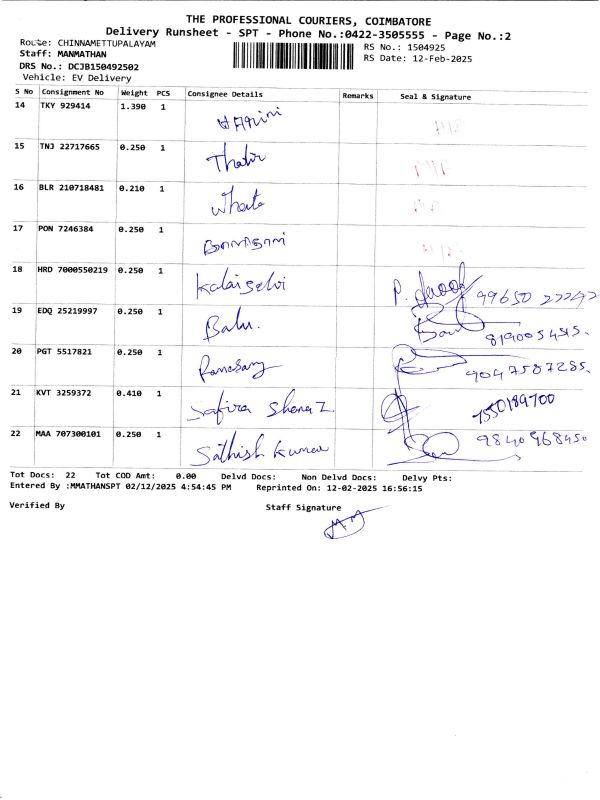 THE PROFESSIONAL COURIERS, COIMBATORE
Delivery Runsheet - SPT - Phone No.:0422-3505555 - Page No.:2
Route: CHINNAMETTUPALAYAM
Staff: MANMATHAN
DRS No.: DCJB150492502
Vehicle: EV Delivery
RS No.: 1504925
RS Date: 12-Feb-2025
S No Consignment No Weight PCS Consignee Details Remarks Seal & Signature
14 TKY 929414 1.390 1
15 TNJ 22717665 0.250 1
16 BLR 210718481 0.210 1
17 PON 7246384 0.250 1
18 HRD 7000550219 0.250 1 Kalaiselvi
19 EDQ 25219997 0.250 1 Balu.
20 PGT 5517821 0.250 1 9047587285.
21 KVT 3259372 0.410 1 Safira Shenaz 7550189700
22 MAA 707300101 0.250 1 Sathish Kumar 9840968450
Tot Docs: 22 Tot COD Amt: 0.00 Delvd Docs: Non Delvd Docs: Delvy Pts:
Entered By :MMATHANSPT 02/12/2025 4:54:45 PM Reprinted On: 12-02-2025 16:56:15
Verified By Staff Signature